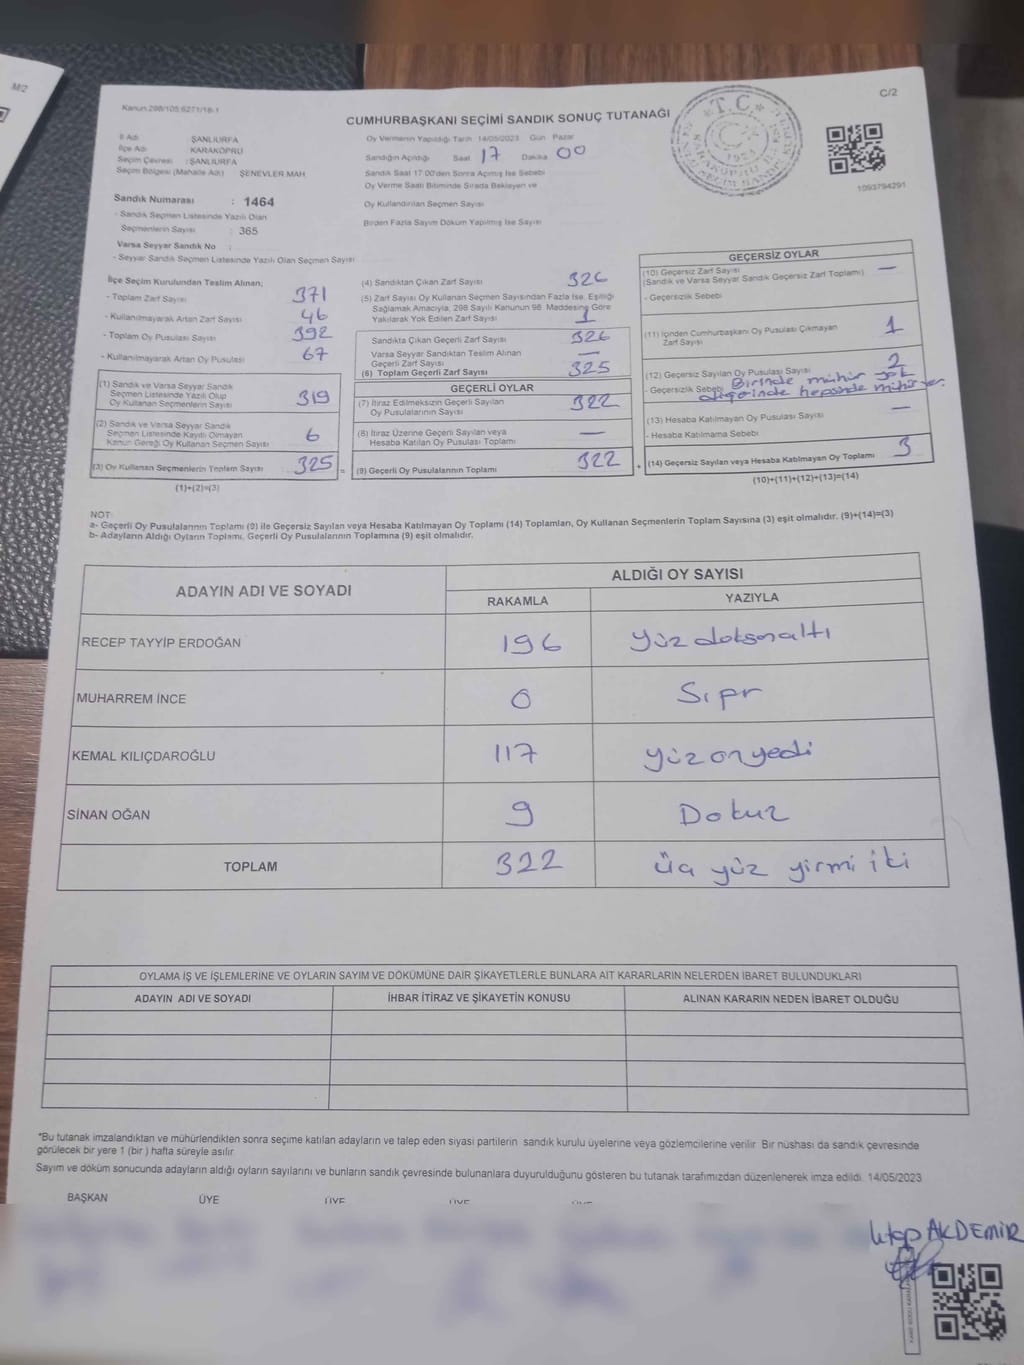 M/2
Kanun 298/105,6271/18-1
C/2
CUMHURBAŞKANI SEÇİMİ SANDIK SONUÇ TUTANAĞI
T.C.
İl Adı : ŞANLIURFA
İlçe Adı : KARAKÖPRÜ
Seçim Çevresi : ŞANLIURFA
Seçim Bölgesi (Mahalle Adı) : ŞENEVLER MAH
Oy Vermenin Yapıldığı Tarih 14/05/2023 Gün Pazar
Sandığın Açıldığı Saat 17 Dakika 00
Sandık Saat 17:00'den Sonra Açılmış İse Sebebi
Oy Verme Saati Bitiminde Sırada Bekleyen ve
Oy Kullandırılan Seçmen Sayısı
Birden Fazla Sayım Döküm Yapılmış İse Sayısı
1093794291
Sandık Numarası : 1464
- Sandık Seçmen Listesinde Yazılı Olan
Seçmenlerin Sayısı : 365
Varsa Seyyar Sandık No :
- Seyyar Sandık Seçmen Listesinde Yazılı Olan Seçmen Sayısı :
İlçe Seçim Kurulundan Teslim Alınan;
- Toplam Zarf Sayısı 371
- Kullanılmayarak Artan Zarf Sayısı 46
- Toplam Oy Pusulası Sayısı 392
- Kullanılmayarak Artan Oy Pusulası 67
(1) Sandık ve Varsa Seyyar Sandık
Seçmen Listesinde Yazılı Olup
Oy Kullanan Seçmenlerin Sayısı 319
(2) Sandık ve Varsa Seyyar Sandık
Seçmen Listesinde Kayıtlı Olmayan
Kanun Gereği Oy Kullanan Seçmen Sayısı 6
(3) Oy Kullanan Seçmenlerin Toplam Sayısı 325 =
(1)+(2)=(3)
(4) Sandıktan Çıkan Zarf Sayısı 326
(5) Zarf Sayısı Oy Kullanan Seçmen Sayısından Fazla İse, Eşitliği
Sağlamak Amacıyla, 298 Sayılı Kanunun 98. Maddesine Göre
Yakılarak Yok Edilen Zarf Sayısı 1
Sandıkta Çıkan Geçerli Zarf Sayısı 326
Varsa Seyyar Sandıktan Teslim Alınan
Geçerli Zarf Sayısı —
(6) Toplam Geçerli Zarf Sayısı 325
GEÇERLİ OYLAR
(7) İtiraz Edilmeksizin Geçerli Sayılan
Oy Pusulalarının Sayısı 322
(8) İtiraz Üzerine Geçerli Sayılan veya
Hesaba Katılan Oy Pusulası Toplamı —
(9) Geçerli Oy Pusulalarının Toplamı 322 +
GEÇERSİZ OYLAR
(10) Geçersiz Zarf Sayısı —
(Sandık ve Varsa Seyyar Sandık Geçersiz Zarf Toplamı)
- Geçersizlik Sebebi
(11) İçinden Cumhurbaşkanı Oy Pusulası Çıkmayan
Zarf Sayısı 1
(12) Geçersiz Sayılan Oy Pusulası Sayısı 2
- Geçersizlik Sebebi Birinde mühür yok
diğerinde hepsinde mühür var.
(13) Hesaba Katılmayan Oy Pusulası Sayısı —
- Hesaba Katılmama Sebebi
(14) Geçersiz Sayılan veya Hesaba Katılmayan Oy Toplamı 3
(10)+(11)+(12)+(13)=(14)
NOT:
a- Geçerli Oy Pusulalarının Toplamı (9) ile Geçersiz Sayılan veya Hesaba Katılmayan Oy Toplamı (14) Toplamları, Oy Kullanan Seçmenlerin Toplam Sayısına (3) eşit olmalıdır. (9)+(14)=(3)
b- Adayların Aldığı Oyların Toplamı, Geçerli Oy Pusulalarının Toplamına (9) eşit olmalıdır.
ADAYIN ADI VE SOYADI
ALDIĞI OY SAYISI
RAKAMLA YAZIYLA
RECEP TAYYİP ERDOĞAN 196 Yüz doksan altı
MUHARREM İNCE 0 Sıfır
KEMAL KILIÇDAROĞLU 117 yüz on yedi
SİNAN OĞAN 9 Dokuz
TOPLAM 322 üç yüz yirmi iki
OYLAMA İŞ VE İŞLEMLERİNE VE OYLARIN SAYIM VE DÖKÜMÜNE DAİR ŞİKAYETLERLE BUNLARA AİT KARARLARIN NELERDEN İBARET BULUNDUKLARI
ADAYIN ADI VE SOYADI İHBAR İTİRAZ VE ŞİKAYETİN KONUSU ALINAN KARARIN NEDEN İBARET OLDUĞU
*Bu tutanak imzalandıktan ve mühürlendikten sonra seçime katılan adayların ve talep eden siyasi partilerin sandık kurulu üyelerine veya gözlemcilerine verilir. Bir nüshası da sandık çevresinde
görülecek bir yere 1 (bir) hafta süreyle asılır.
Sayım ve döküm sonucunda adayların aldığı oyların sayılarını ve bunların sandık çevresinde bulunanlara duyurulduğunu gösteren bu tutanak tarafımızdan düzenlenerek imza edildi. 14/05/2023
BAŞKAN ÜYE ÜYE ÜYE ÜYE
AKDEMİR